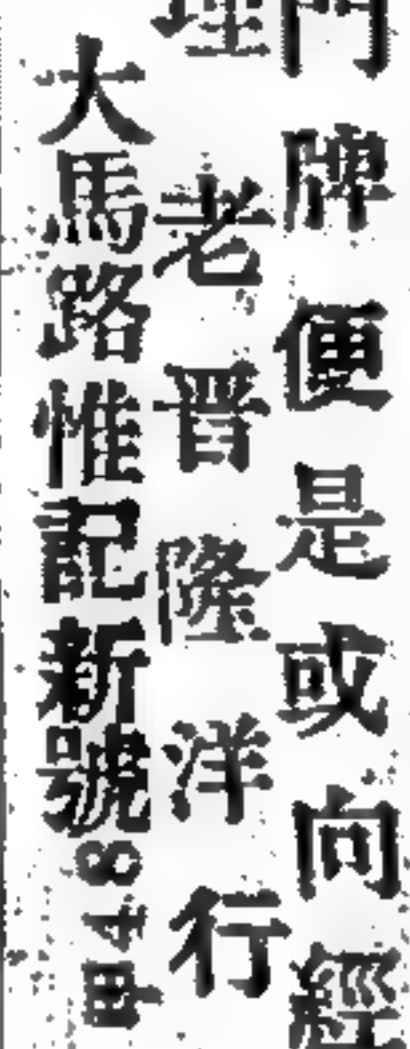 門牌便是或向經
理老晋隆洋行
大馬路惟記新號甲48